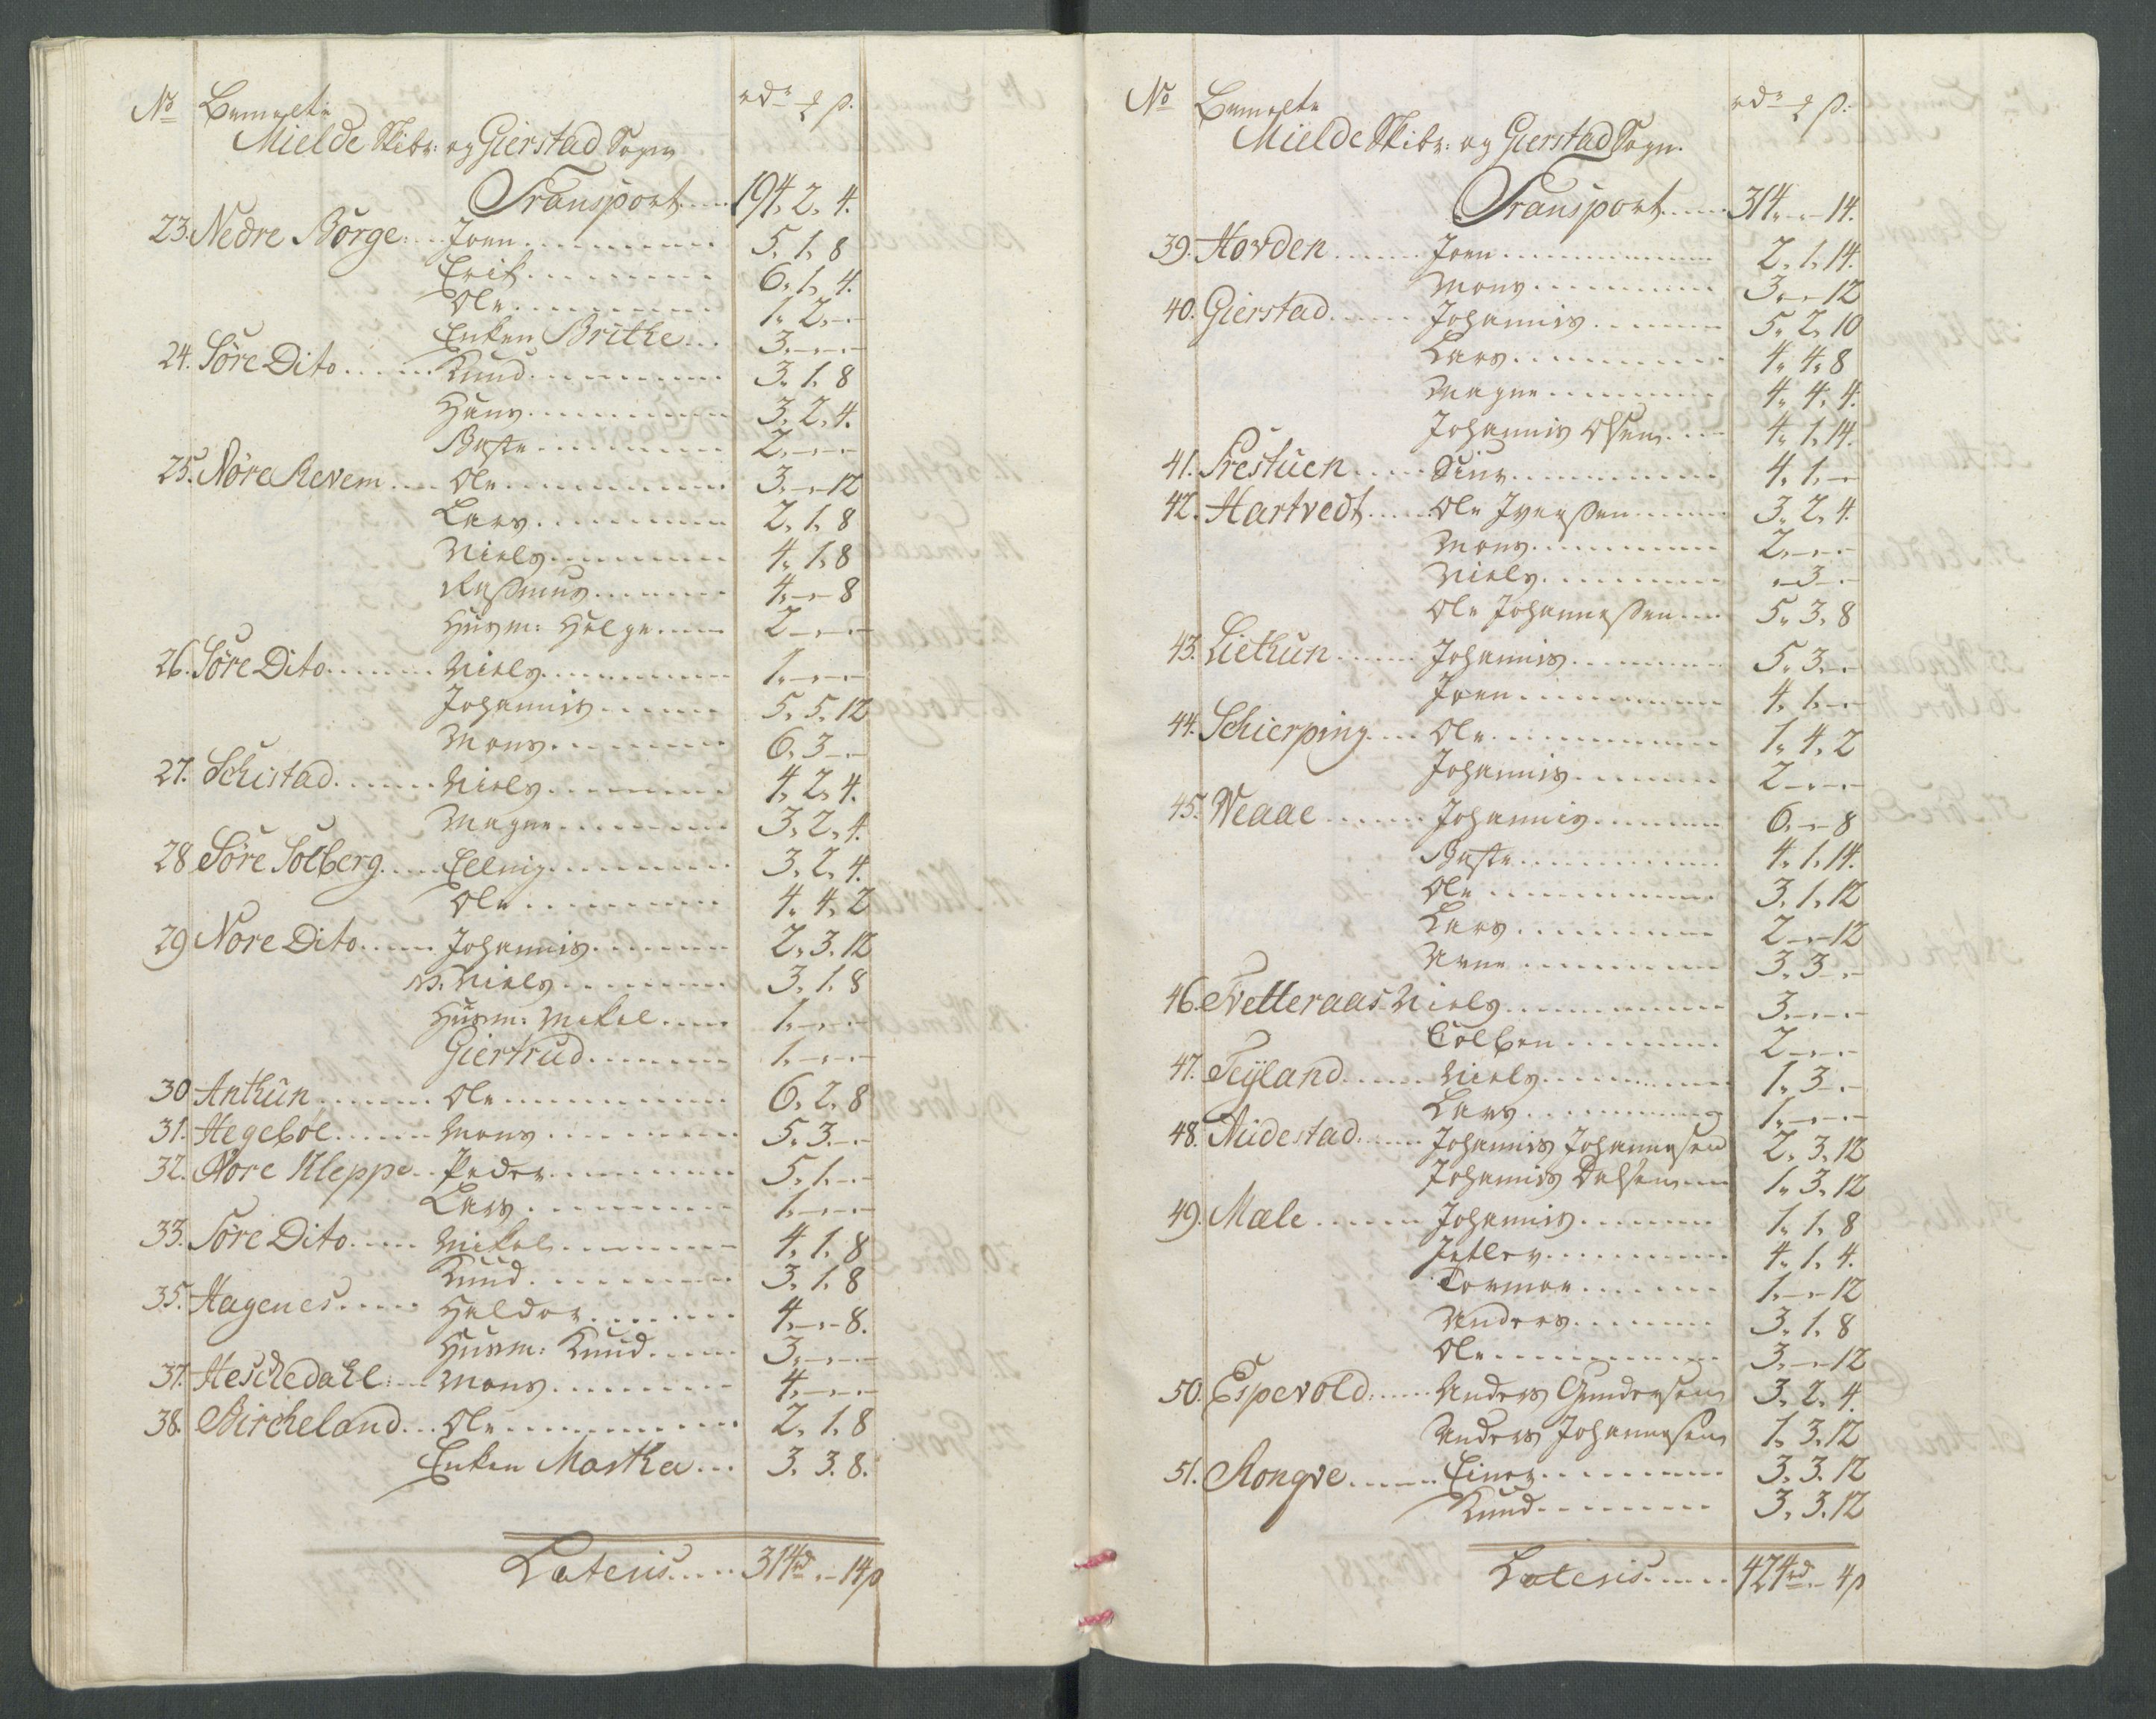 No Bemelte rdr ₰ ß.
Mielde Skibr: og Gierstad Sogn
Transport .... 194. 2. 4.
23. Nedre Borge .... Joen .... 5. 1. 8
Erik .... 6. 1. 4.
Ole .... 1. 2. -
Enken Brithe ... 3. - . -
24. Søre Dito .... Knud .... 3. 1. 8
Hans .... 3. 2. 4.
Botte .... 2. - . -
25. Nøre Revem .... Ole .... 3. - . 12
Lars .... 2. 1. 8
Niels .... 4. 1. 8
Rasmus .... 4. - . 8
Husm: Helge .... 2 - . -
26. Søre Dito .... Niels .... 1. - . -
Johannis .... 5. 5. 12
Mons .... 6. 3 - . -
27. Schistad .... Niels .... 4. 2. 4.
Magne .... 3. 2. 4.
28 Søre Solberg .... Elling .... 3. 2. 4.
Ole .... 4. 4. 2
29 Nore Dito .... Johannis .... 2. 3. 12
N. Niels .... 3. 1. 8
Husm: Mikel .... 1. - . -
Giertrud .... 1. - . -
30 Anthun .... Ole .... 6. 2. 8
31. Hegebøe .... Mons .... 5. 3. -
32. Nore Kleppe .. Peder .... 5. 1. -
Lars .... 1. - . -
33. Søre Dito .... Mikel .... 4. 1. 8
Knud .... 3. 1. 8
35. Hagenes .... Haldor .... 4. - . 8.
Husm: Knud .... 3. - . -
37. Heschedahl .... Mons .... 4. - . -
38. Bircheland ... Ole .... 2. 1. 8
Enken Martha ... 3. 3. 8.
Lateris .... 314rd . - 14ß
No Bemelte rdr ₰ ß.
Mielde Skibr: og Gierstad Sogn.
Transport .... 314. - . 14.
39. Hovden .... Joen .... 2. 1. 14.
Mons .... 3. - . 12
40. Gierstad .... Johannis .... 5. 2. 10
Lars .... 4. 4. 8
Magne .... 4. 4. 4.
Johannis Olsen .... 4. 1. 14.
41. Prestuen .... Siur .... 4. 1. -
42. Hartvedt .... Ole Iverßen .... 3. 2. 4.
Mons .... 2. - . -
Niels .... . 3 - .
Ole Johanneßen .... 5. 3. 8
43. Liethun .... Johannis .... 5. 3. -
Joen .... 4. 1. -
44. Schierping .... Ole .... 1. 4. 2
Johannis .... 2 - . -
45. Weaae .... Johannis .... 6. - . 8
Botte .... 4. 1. 14.
Ole .... 3. 1. 12
Lars .... 2 - . 12
Arne .... 3. 3 . -
46. Tvetteraas Niels .... 3. - . -
Colben .... 2 - . -
47. Tejland .... Niels .... 1. 3 . -
Lars .... 1. - . -
48. Audestad .... Johannis Johannesen 2. 3. 12
Johannis Dalsen .... 1. 3. 12
49. Mæle .... Johannis .... 1. 1. 8
Jetlev .... 4. 1. 4.
Tormoe .... 1. - . 12
Anders .... 3. 1. 8
Ole .... 3. - . 12
50. Espevold .... Anders Gundersen 3. 2. 4.
Anders Johannesen 1. 3. 12
51. Rongve .... Einer .... 3. 3. 12
Knud .... 3. 3. 12
Lateris .... 424rd . - 4ß